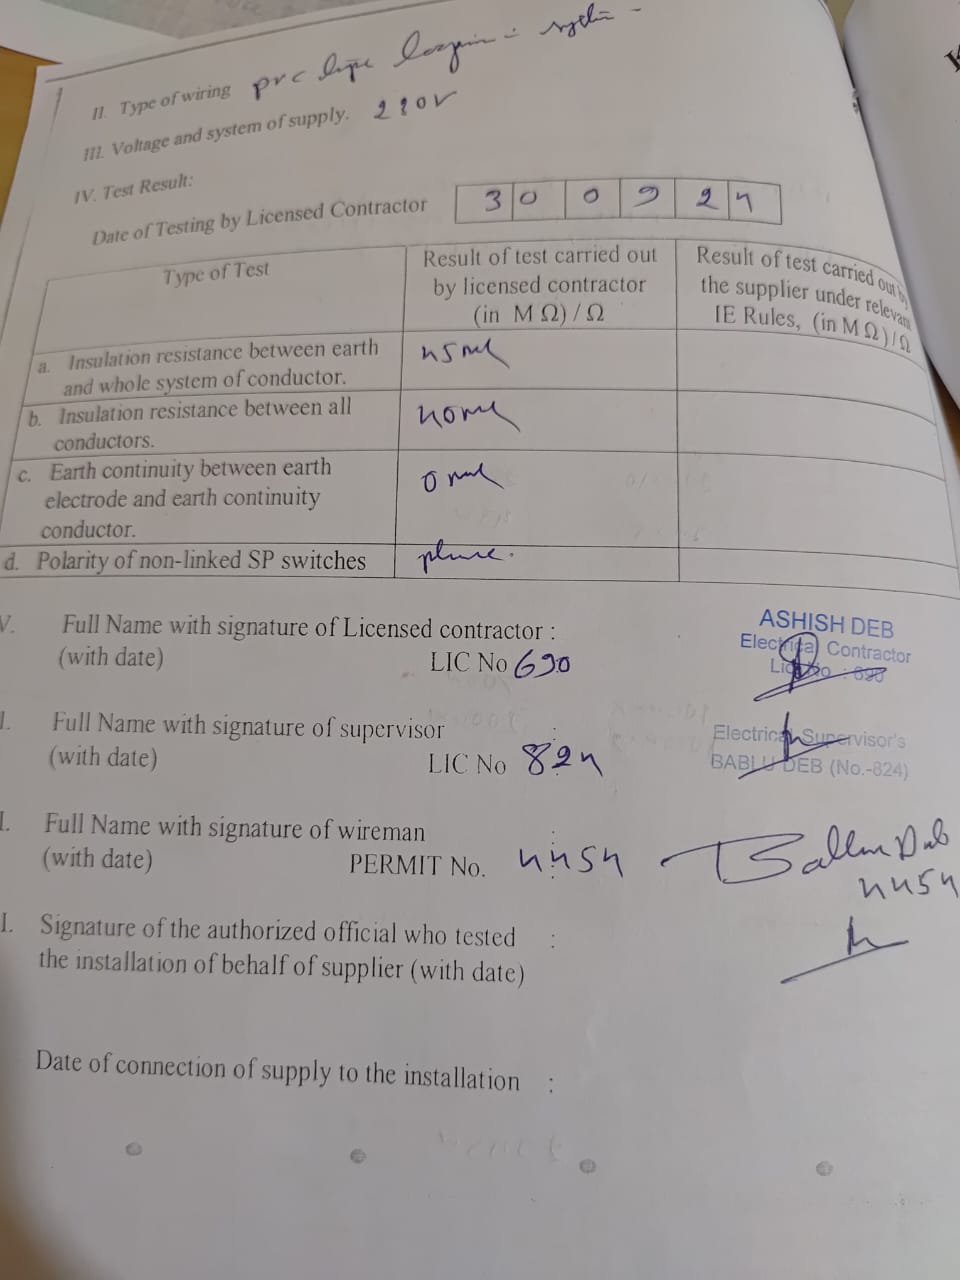 II. Type of wiring pvc type
III. Voltage and system of supply. 220V
IV. Test Result:
Date of Testing by Licensed Contractor 30 09 24
Type of Test
Result of test carried out
by licensed contractor
(in M Ω) / Ω
Result of test carried out by
the supplier under relevant
IE Rules, (in M Ω) / Ω
a. Insulation resistance between earth
and whole system of conductor.
b. Insulation resistance between all
conductors.
c. Earth continuity between earth
electrode and earth continuity
conductor.
d. Polarity of non-linked SP switches
V. Full Name with signature of Licensed contractor :
(with date) LIC No 690
ASHISH DEB
Electrical Contractor
Lic. No : 690
I. Full Name with signature of supervisor :
(with date) LIC No 824
Electrical Supervisor's
BABLU DEB (No.-824)
I. Full Name with signature of wireman :
(with date) PERMIT No. 4454
4454
I. Signature of the authorized official who tested :
the installation of behalf of supplier (with date)
Date of connection of supply to the installation :